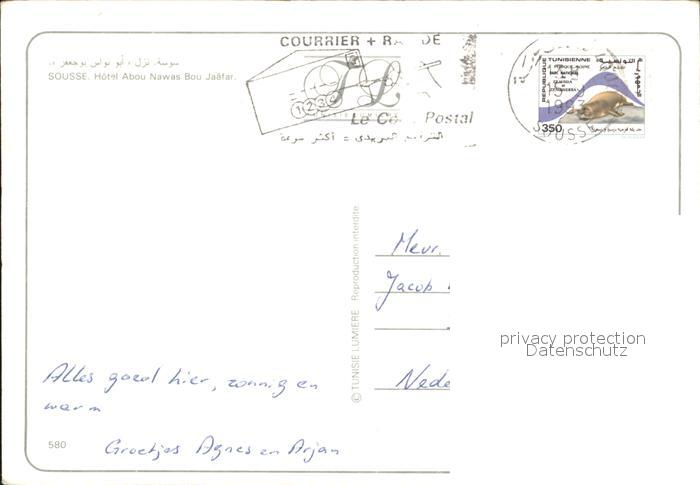 سوسة. نزل «أبو نواس بوجعفر».
SOUSSE. Hôtel Abou Nawas Bou Jaâfar.
COURRIER + RA DE
1 2 3 4
Le Co Postal
الترقيم البريدي = أكثر سرعة
REPUBLIQUE TUNISIENNE
الجمهورية التونسية
PHOQUE MOINE
PARC NATIONAL
350
1993
SOUSSE
© TUNISIE LUMIERE - Reproduction interdite
Mevr.
Jacob
Nede
privacy protection
Datenschutz
Alles goed hier, zonnig en
warm
Groetjes Agnes en Arjan
580